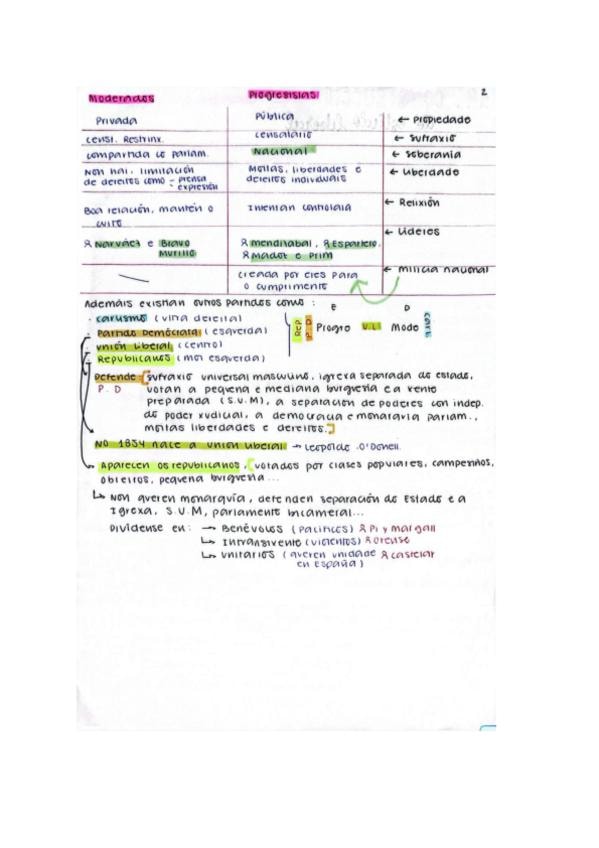 2
Moderados Progresistas
Privada Pública ← Propiedade
censi. Restrinx. censalario ← sufraxio
compartida co parlam. Nacional ← soberanía
Non hai, limitación Moitas, liberdades e ← Liberdade
de dereitos como - prensa dereitos individuais
- expresión
Boa relación, mantén o Intentan controlala ← Relixión
culto
Narváez e Bravo Mendizábal, Espartero, ← Lideres
Murillo Madoz e Prim
creada por eles para ← milicia nacional
o cumprimento
Ademais existían outros partidos como: E D
· carlismo (ultra dereita)
· Partido Demócrata (esquerda) Rep P.D Progre U.L Mode Carl
· Unión Liberal (centro)
· Republicanos (moi esquerda)
Defende: [sufraxio universal masculino, igrexa separada do estado,
P.D votan a pequena e mediana burguesía e a xente
preparada (S.U.M), a separación de poderes con indep.
do poder xudicial, a democracia e monarquía parlam.,
moitas liberdades e dereitos.]
NO 1854 nace a Unión Liberal → Leopoldo O'Donell.
Aparecen os republicanos, [votados por clases populares, campesiños,
obreiros, pequena burguesía...
↳ Non queren monarquía, defenden separación do Estado e a
Igrexa, S.U.M, parlamento bicameral...
Divídense en: → Benévolos (pacíficos) Pi y Margall
↳ Intransixente (violentos) Orense
↳ Unitarios (queren unidade Castelar
en España)